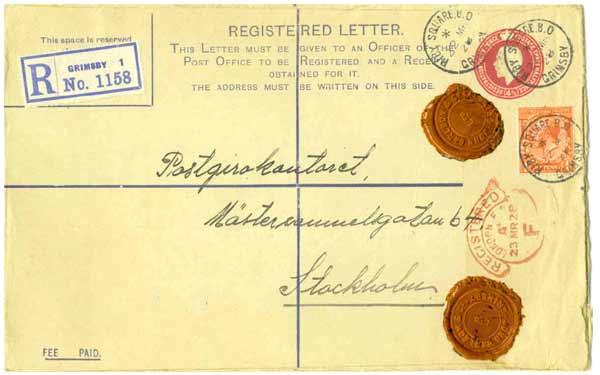 REGISTERED LETTER.
This space is reserved
THIS LETTER MUST BE GIVEN TO AN OFFICER OF THE
POST OFFICE TO BE REGISTERED AND A RECEIPT
OBTAINED FOR IT.
THE ADDRESS MUST BE WRITTEN ON THIS SIDE.
R
GRIMSBY 1
No. 1158
SQUARE B.O
GRIMSBY
GRIMSBY
GRIMSBY
Postgirokontoret,
Mästersamuelsgatan 61
Stockholm
REGISTERED
LONDON
23 MR 28
F
FEE PAID.